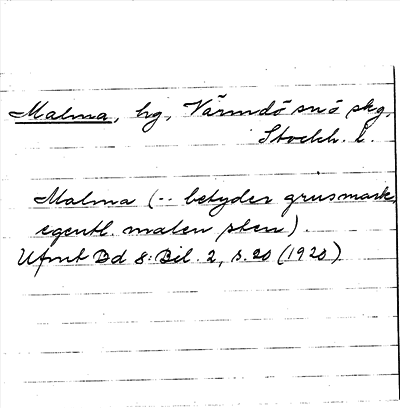 Malma, hg, Värmdö snö skg,
Stockh. L.
Malma (-- betyder grusmark,
egentl. malen sten).
Ufmt Bd 8: Bil. 2, s. 20 (1920)